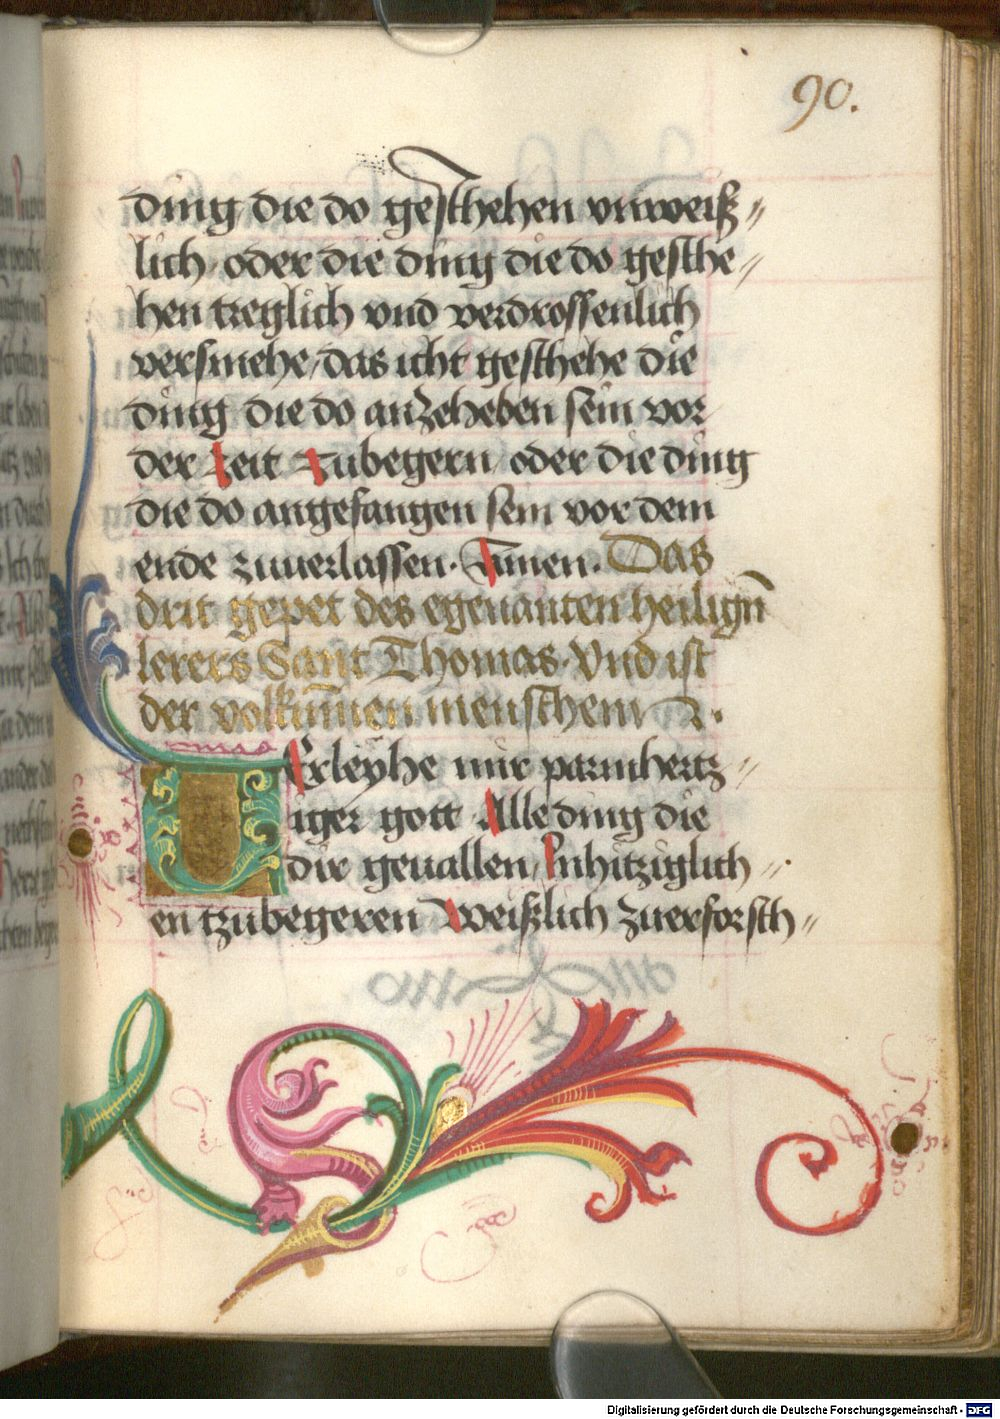 90.
ding die do geschehen vnweiß〃
lich oder die ding die do gesche〃
hen treglich vnd verdrossenlich
versmehe, das icht geschehe die
ding die do anzeheben sein vor
der zeit zubegern oder die ding
die do angefangen sein vor dem
ende zuuerlassen. Amen. Das
drit gepet des egenanten heiligñ
lerers Sant Thomas. Vnd ist
der volkum̄en menschenn
VErleyhe mir parmhertz〃
iger gott Alle ding die
dir geuallen, Inhitziglich〃
en tzubegeren Weißlich zuerforsch〃
Digitalisierung gefördert durch die Deutsche Forschungsgemeinschaft - DFG